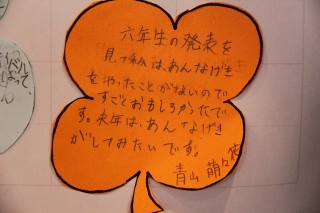 六年生の発表を
見て私は、あんなげき
をやったことがないので
すごくおもしろかったで
す。来年は、あんなげき
がしてみたいです。
青山 萌々佳